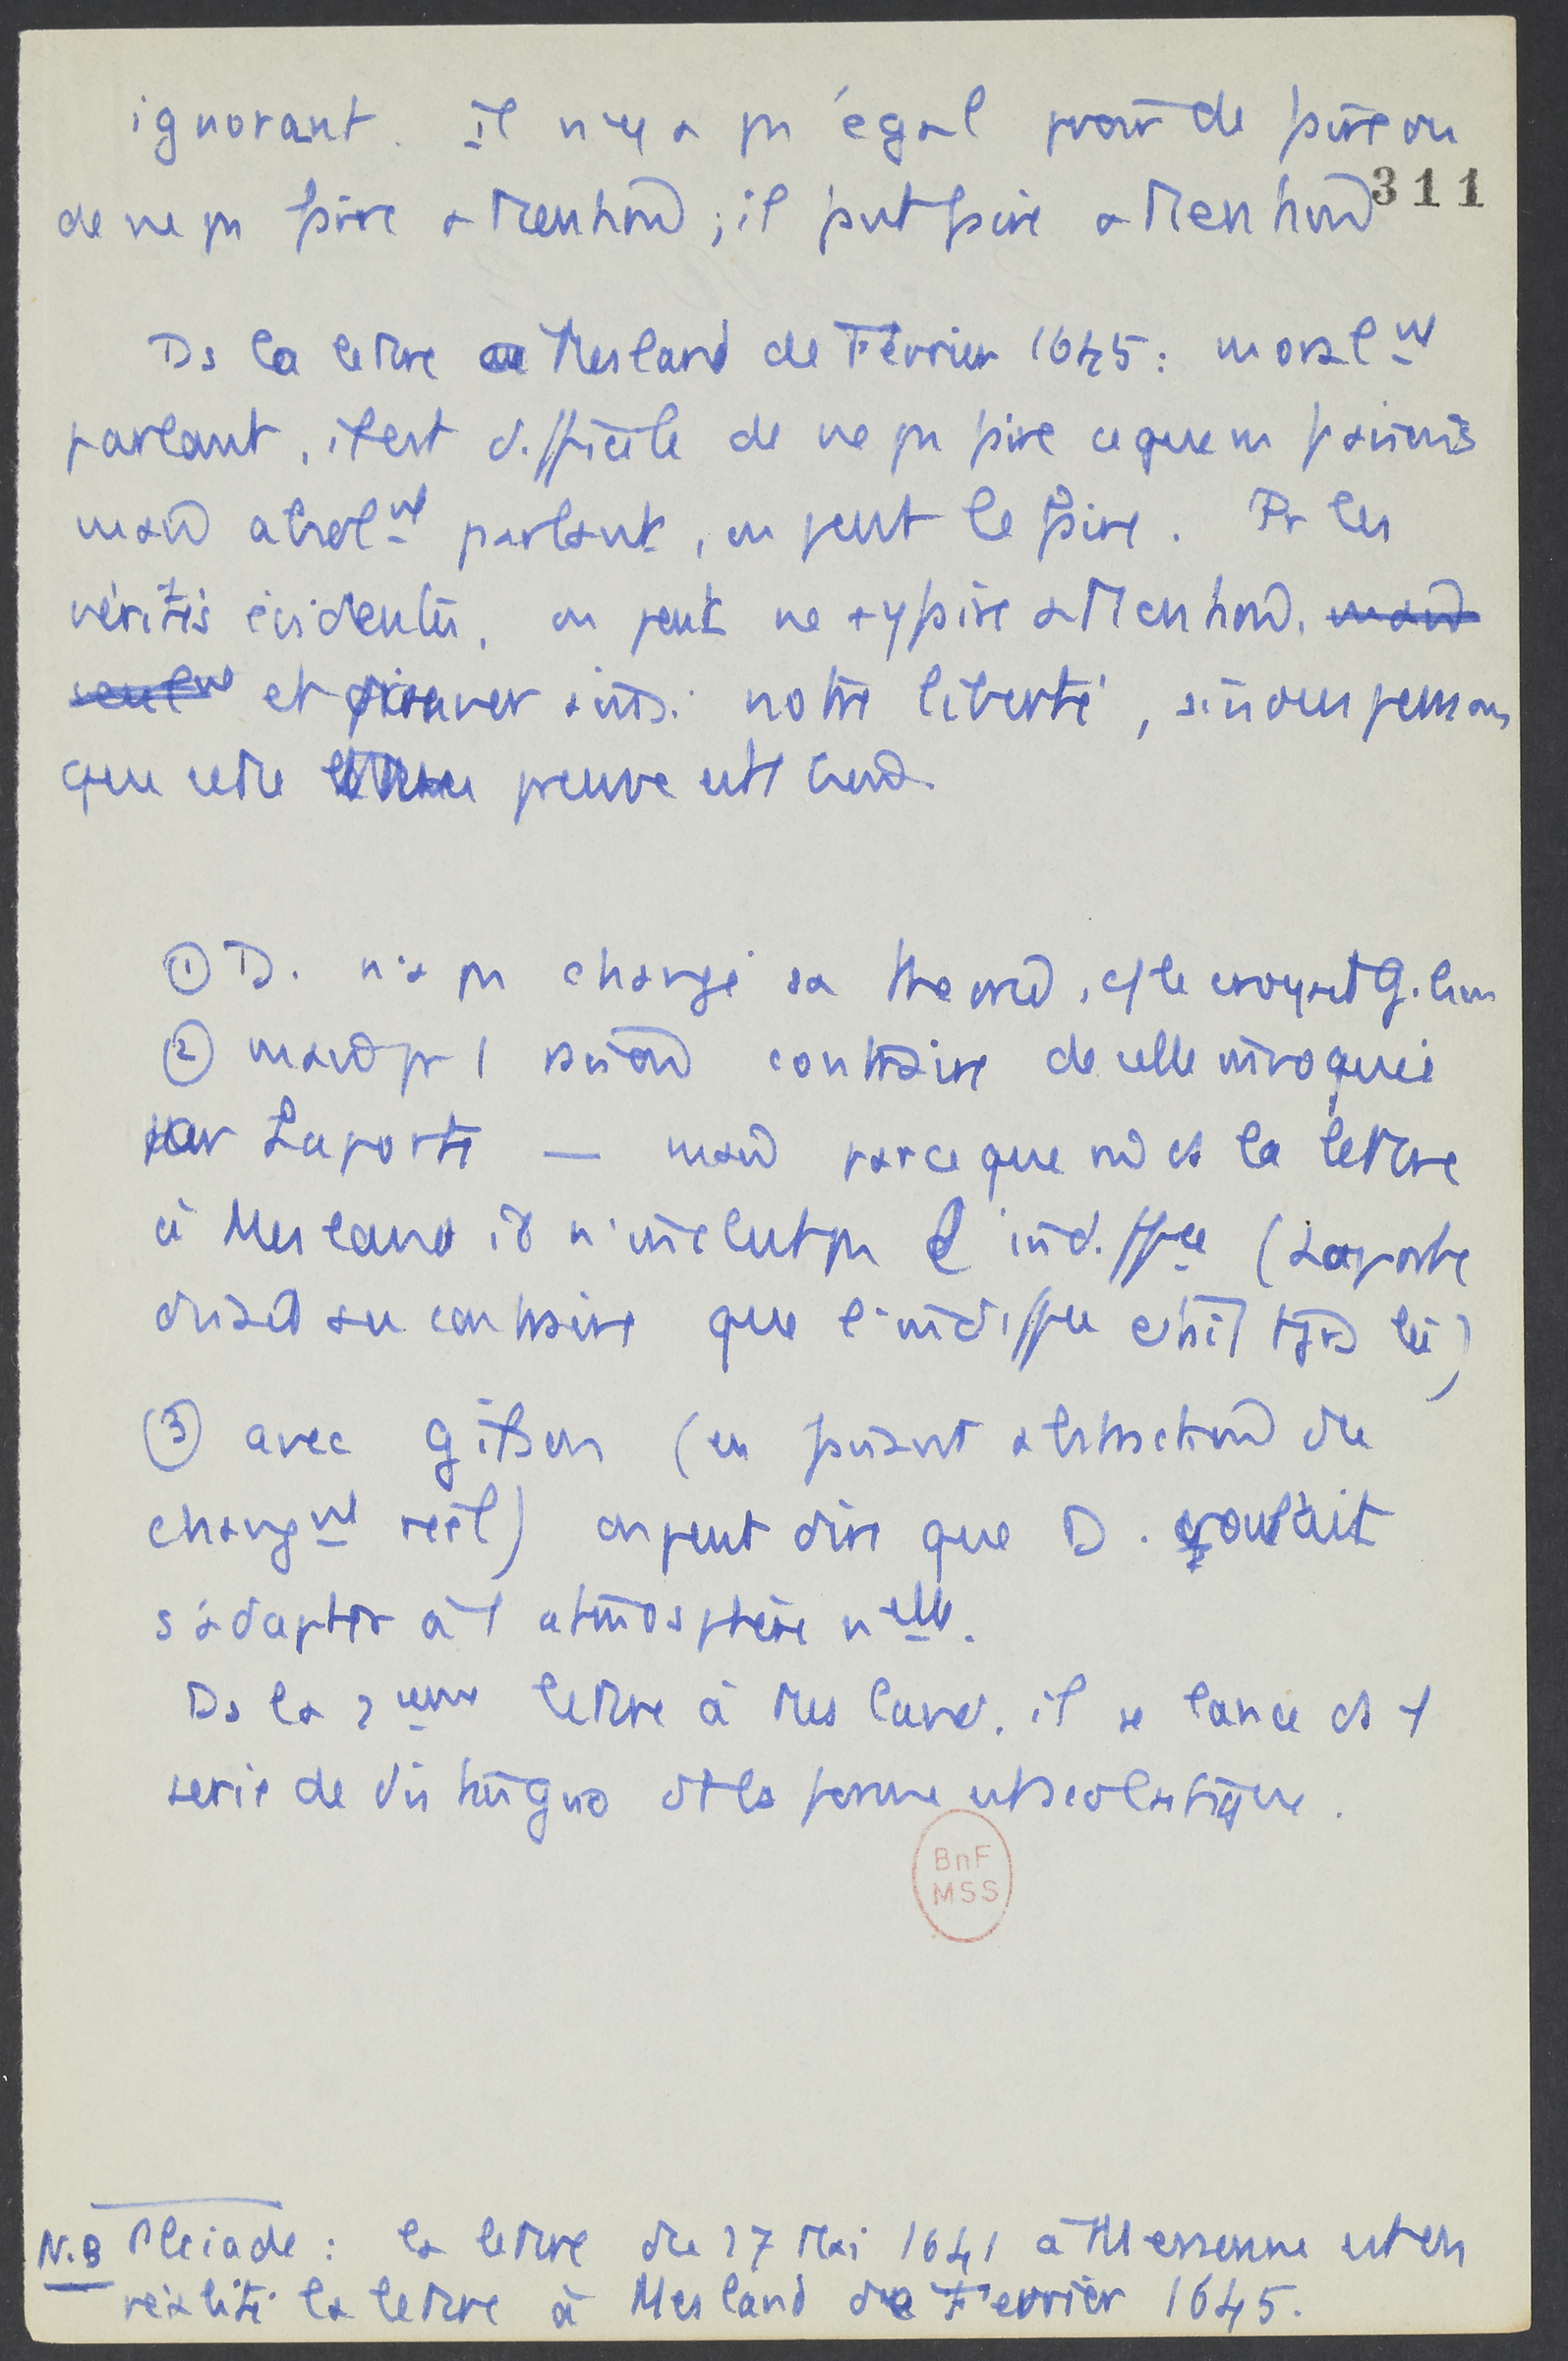 ignorant. il n'y a pas égal pouvoir de faire ou
311
de ne pas faire attention ; il peut faire attention
Ds la lettre à Mesland de Février 1645 : moralmt
parlant, il est difficile de ne pas faire ce que
mais absolmt parlant, on peut le faire. Pr les
vérités évidentes, on peut ne pas y faire attention, mais
seulmt et prouver ainsi notre liberté, si nous pensons
que cette preuve est bonne
① D. n'a pas changé sa théorie, c/ le croyait Gilson
② mais pr 1 raison contraire de celle invoquée
par Laporte — mais parce que mê ds la lettre
à Mesland il n'inclut pas l'indiffce (Laporte
disait au contraire que l'indiffce était tjrs là)
③ avec Gilson (en faisant abstraction du
changmt réel) on peut dire que D. voulait
s'adapter à 1 atmosphère nelle.
Ds la 2ème lettre à Mesland, il se lance ds 1
série de distinguo dt la forme est scolastique.
BnF
MSS
N.B Pleiade : la lettre du 27 Mai 1641 à Mersenne est en
réalité la lettre à Mesland de Fevrier 1645.